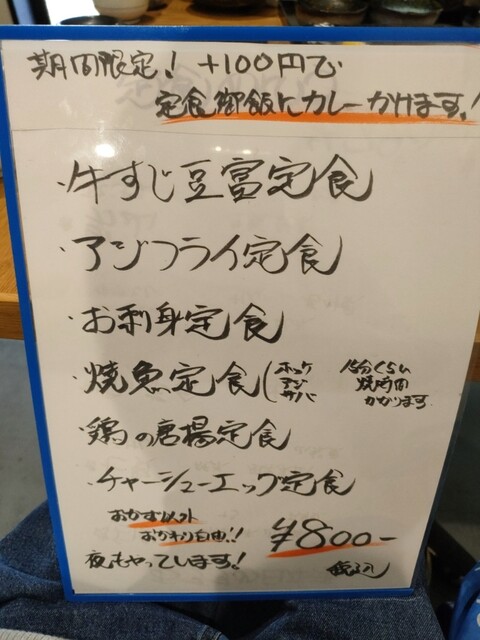 期間限定! +100円で
定食御飯にカレーかけます!
・牛すじ豆富定食
・アジフライ定食
・お刺身定食
・焼魚定食(ホッケ
アジ
サバ
15分くらい
焼時間
かかります
・鶏の唐揚定食
・チャーシューエッグ定食
おかず以外
おかわり自由!!
¥800-
夜もやっています!
税込